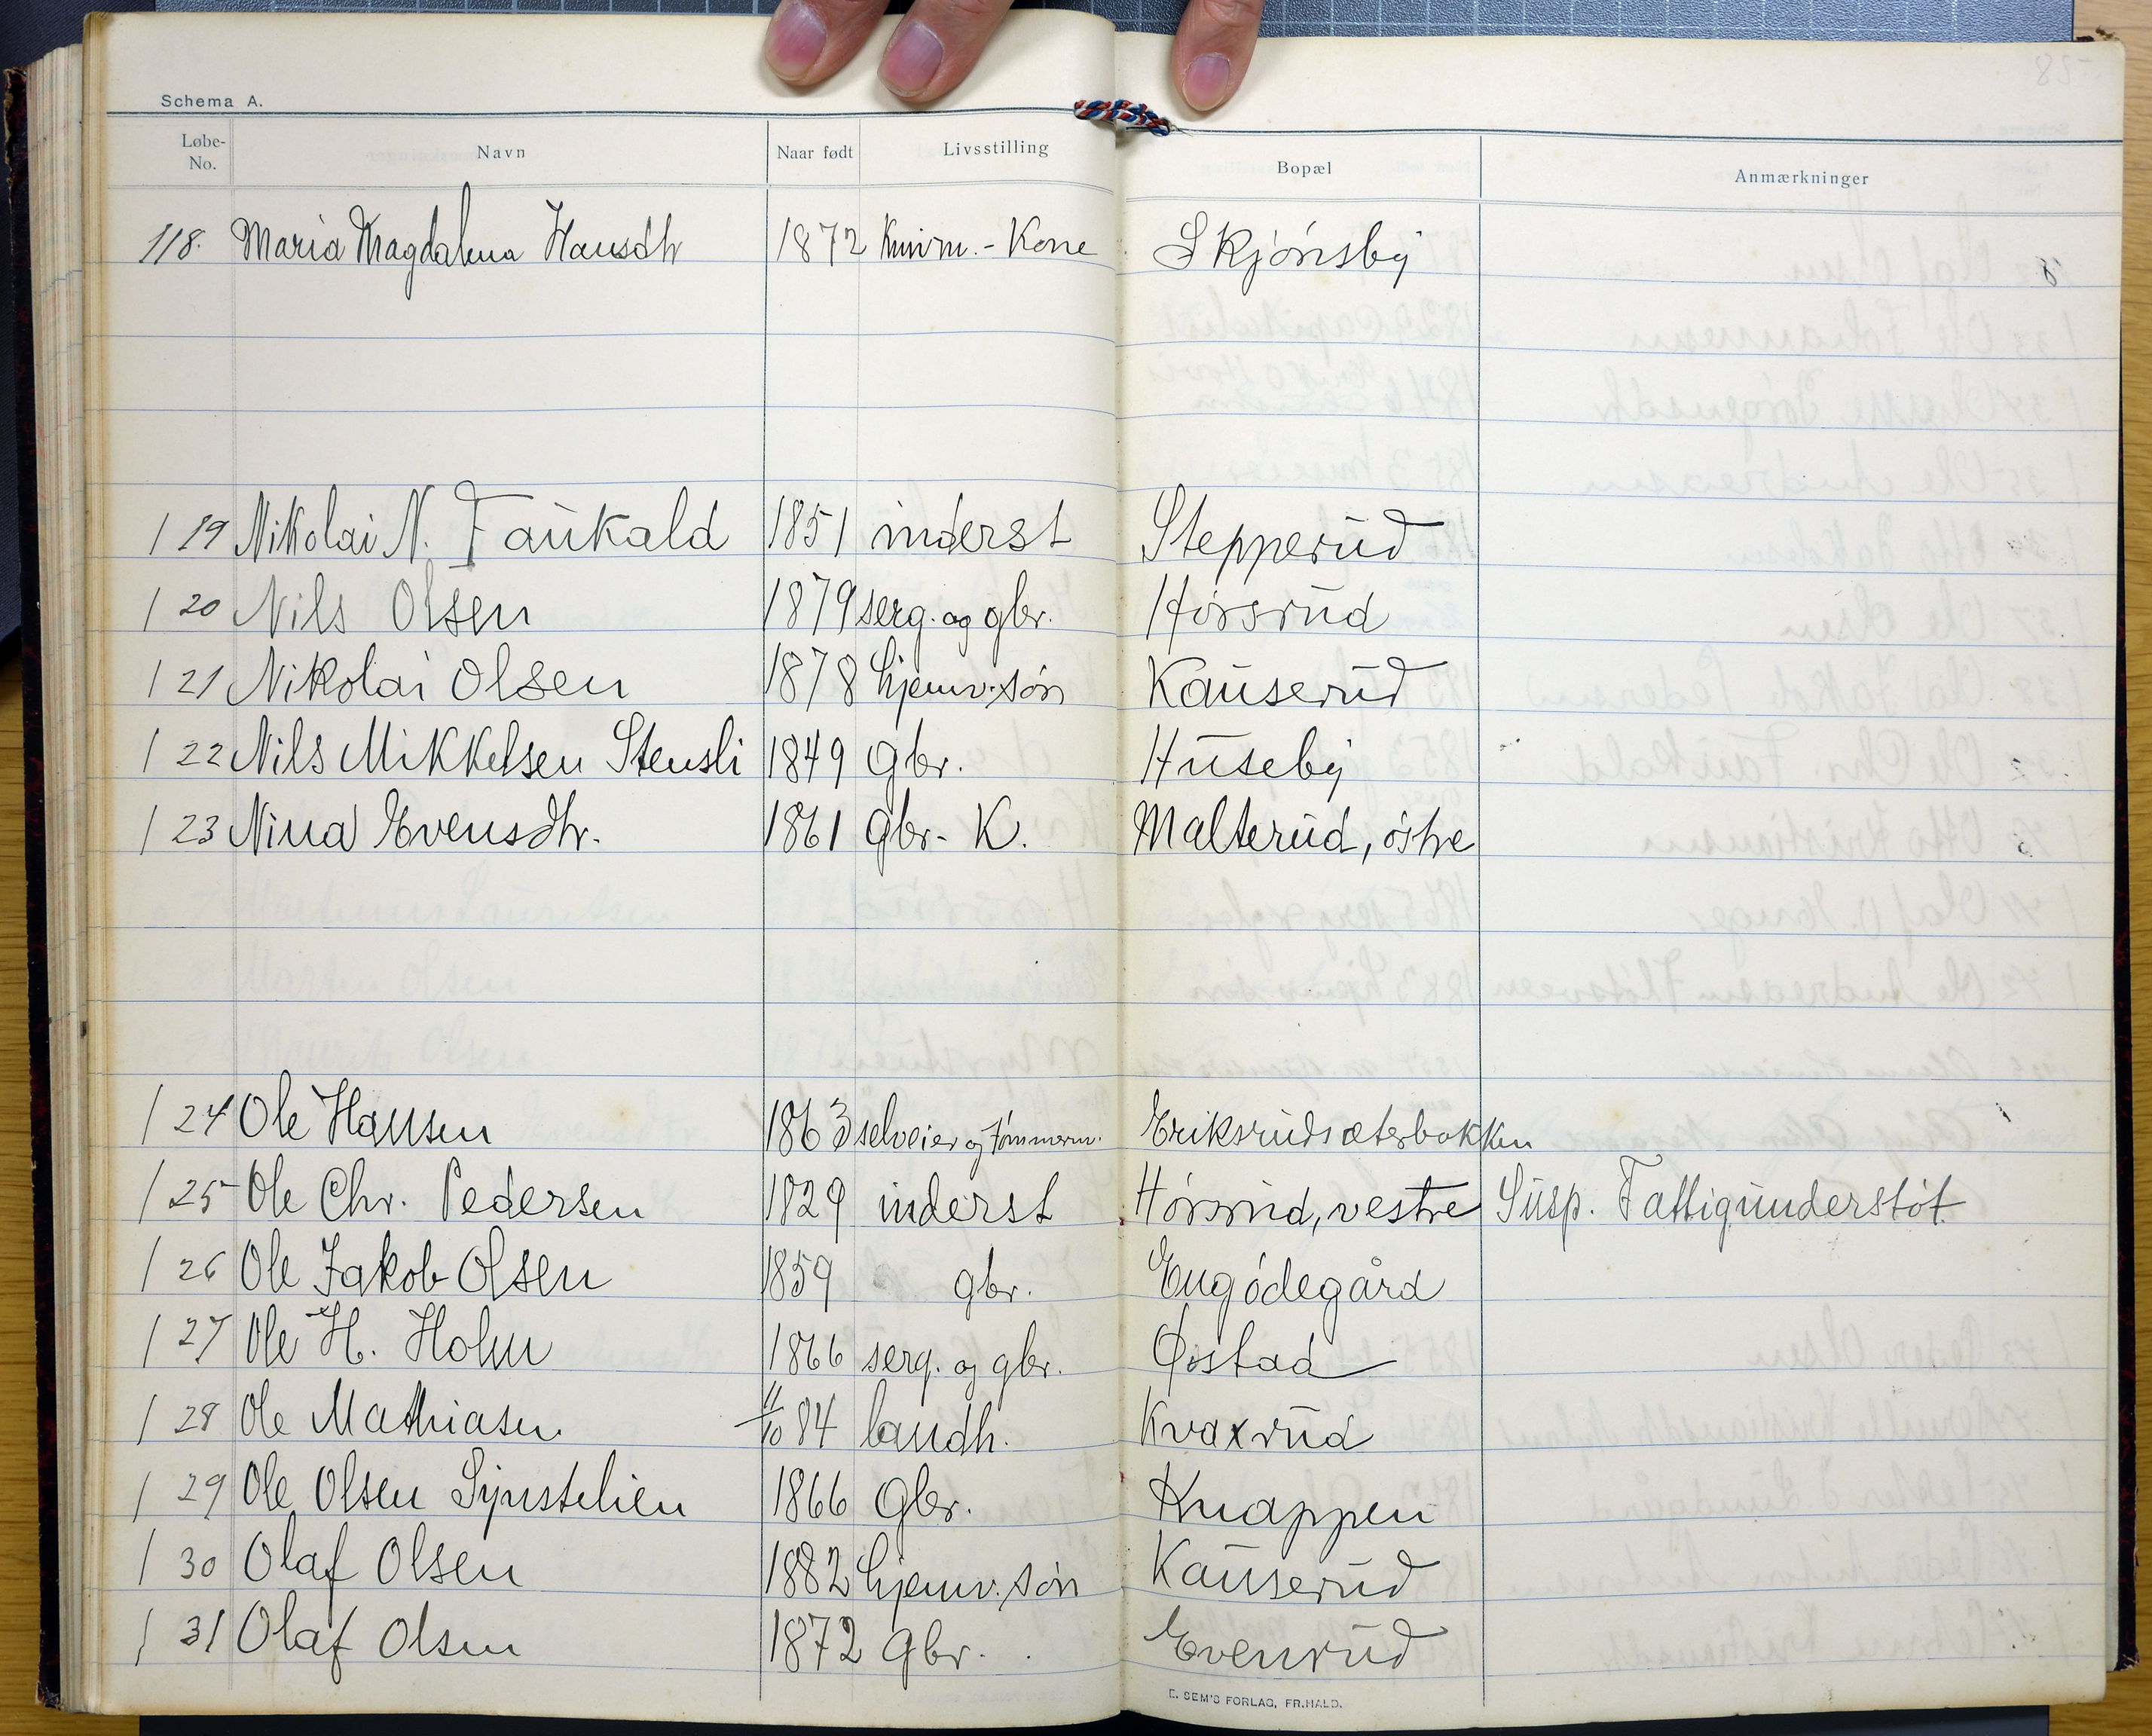 Schema A.
Løbe-No. Navn Naar født Livsstilling Bopæl Anmærkninger
118. Maria Magdalena Hansdh 1872 - Kone Skjønsby
119 Nikolai N. Faukald 1851 inderst Stepperud
120 Nils Olsen 1879 serg. og gbr. Hørsrud
121 Nikolai Olsen 1878 hjemv. søn Kauserud
122 Nils Mikkelsen Stensli 1849 Gbr. Huseby
123 Nina Evensdtr. 1861 Gbr- K. Malterud, østre
124 Ole Hansen 1863 selveier og tømmerm. Eriksrudsæterbakken
125 Ole Chr. Pedersen 1829 inderst Hørsrud, vestre Susp. Fattigunderstøt.
126 Ole Jakob Olsen 1859 gbr. Engødegård
127 Ole H. Holm 1866 serg. og gbr. Østad
128 Ole Mathiasen 11/10 84 landh. Kvaxrud
129 Ole Olsen Synstelien 1866 Gbr. Knappen
130 Olaf Olsen 1882 hjemv. søn Kauserud
131 Olaf Olsen 1872 Gbr. Evenrud
E. SEM'S FORLAG, FR.HALD.